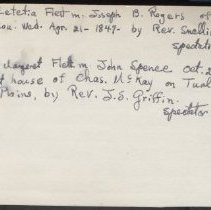 Letetia Flett m. Joseph B. Rogers of
Wed. Apr. 21 - 1847 - by Rev. Snelling
Spectator
Margaret Flett m John Spence Oct. 2
t house of Chas. McKay on Tual
Plains, by Rev. J.S. Griffin.
Spectator